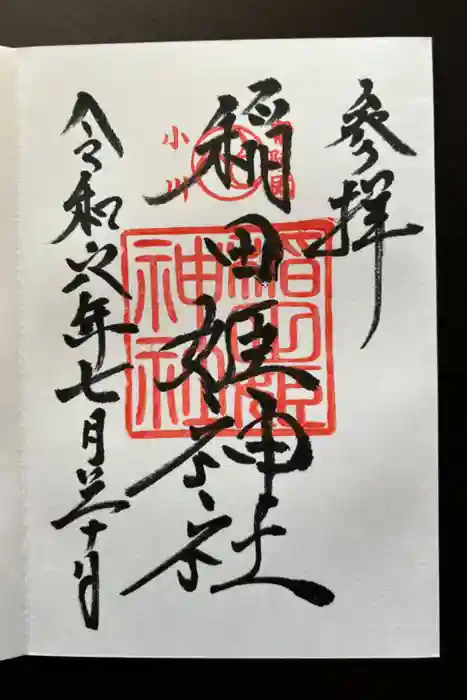 参拝
常陸國
小川
稲田姫神社
稲田姫
神社
令和六年七月三十日